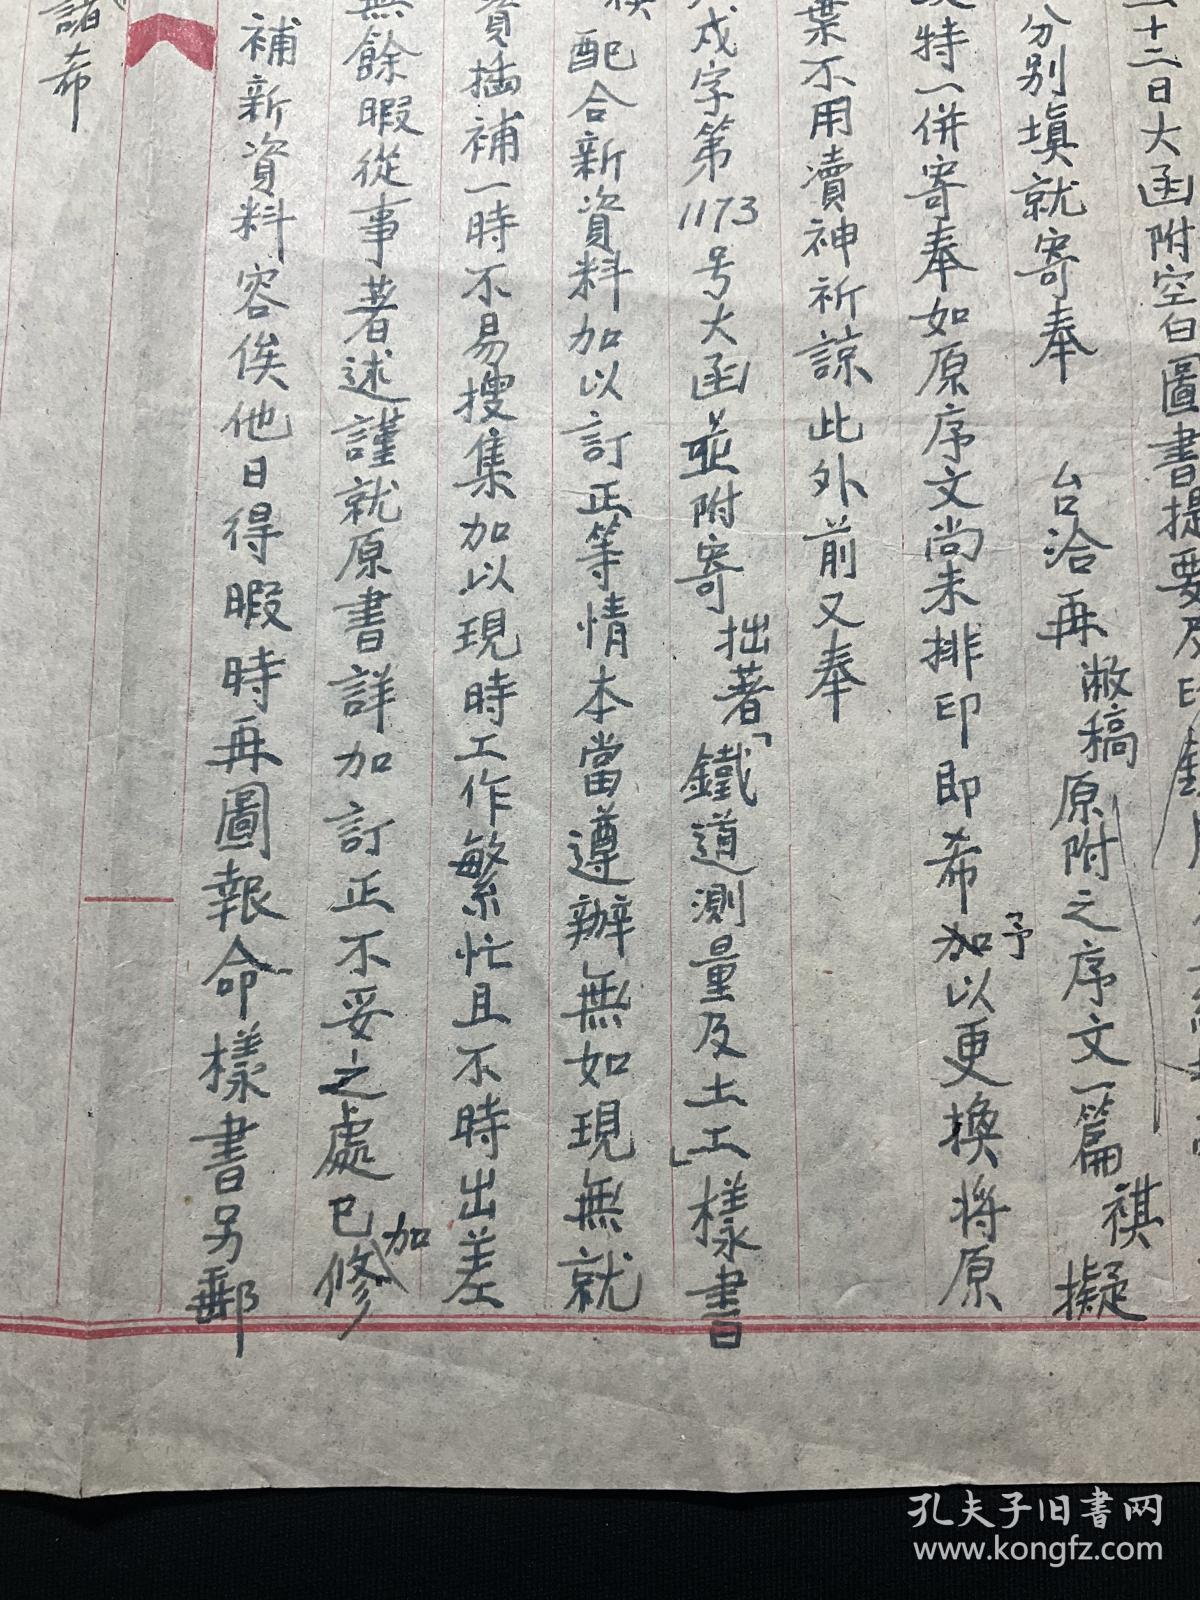 十二日大函附空白圖書提要及印
分別填就寄奉　台洽再敝稿原附之序文一篇祺擬
特一併寄奉如原序文尚未排印即希予加以更換將原
葉不用瀆神祈諒此外前又奉
戍字第1173号大函並附寄拙著「鐵道測量及土工」樣書
配合新資料加以訂正等情本當遵辦無如現無就
資插補一時不易搜集加以現時工作繁忙且不時出差
無餘暇從事著述謹就原書詳加訂正不妥之處已加修
補新資料容俟他日得暇時再圖報命樣書另郵
諸希
孔夫子旧书网
www.kongfz.com